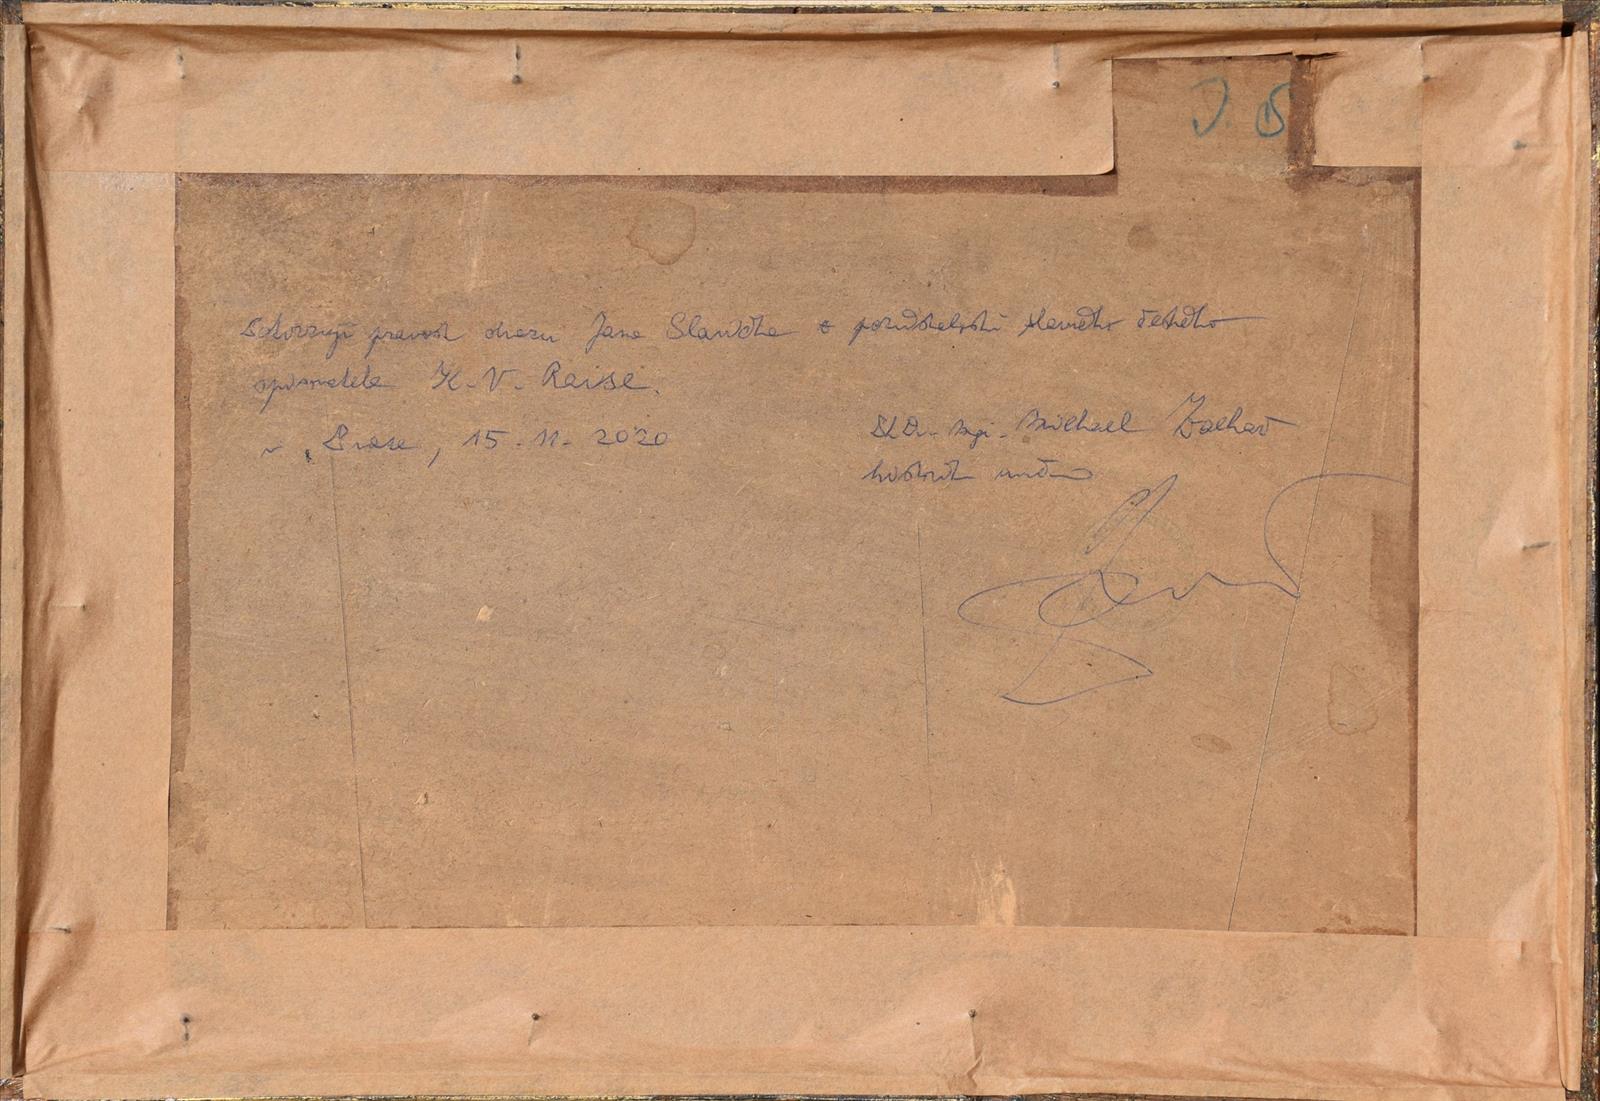 J. S
Potvrzuji pravost obrazu Jana Slavíčka z pozůstalosti slavného českého
spisovatele K. V. Raise.
v Praze, 15. 11. 2020
PhDr. Mgr. Michael Zachař
historik umění